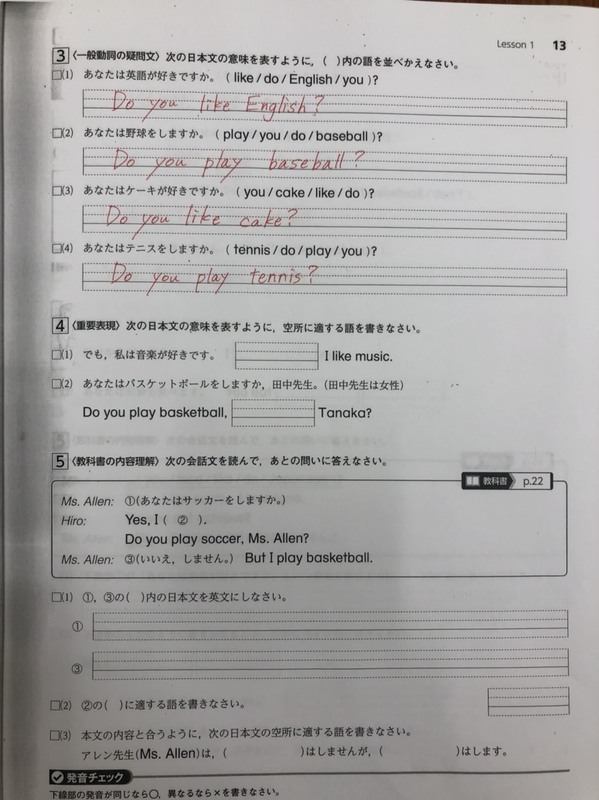 Lesson 1 13
3 〈一般動詞の疑問文〉 次の日本文の意味を表すように，( )内の語を並べかえなさい。
□(1) あなたは英語が好きですか。( like / do / English / you )?
Do you like English?
□(2) あなたは野球をしますか。( play / you / do / baseball )?
Do you play baseball?
□(3) あなたはケーキが好きですか。( you / cake / like / do )?
Do you like cake?
□(4) あなたはテニスをしますか。( tennis / do / play / you )?
Do you play tennis?
4 〈重要表現〉 次の日本文の意味を表すように，空所に適する語を書きなさい。
□(1) でも，私は音楽が好きです。 I like music.
□(2) あなたはバスケットボールをしますか，田中先生。(田中先生は女性)
Do you play basketball, Tanaka?
5 〈教科書の内容理解〉 次の会話文を読んで，あとの問いに答えなさい。
教科書 p.22
Ms. Allen: ①(あなたはサッカーをしますか。)
Hiro: Yes, I ( ② ).
Do you play soccer, Ms. Allen?
Ms. Allen: ③(いいえ，しません。) But I play basketball.
□(1) ①，③の( )内の日本文を英文にしなさい。
①
③
□(2) ②の( )に適する語を書きなさい。
□(3) 本文の内容と合うように，次の日本文の空所に適する語を書きなさい。
アレン先生(Ms. Allen)は，( )はしませんが，( )はします。
発音チェック
下線部の発音が同じなら○，異なるなら×を書きなさい。